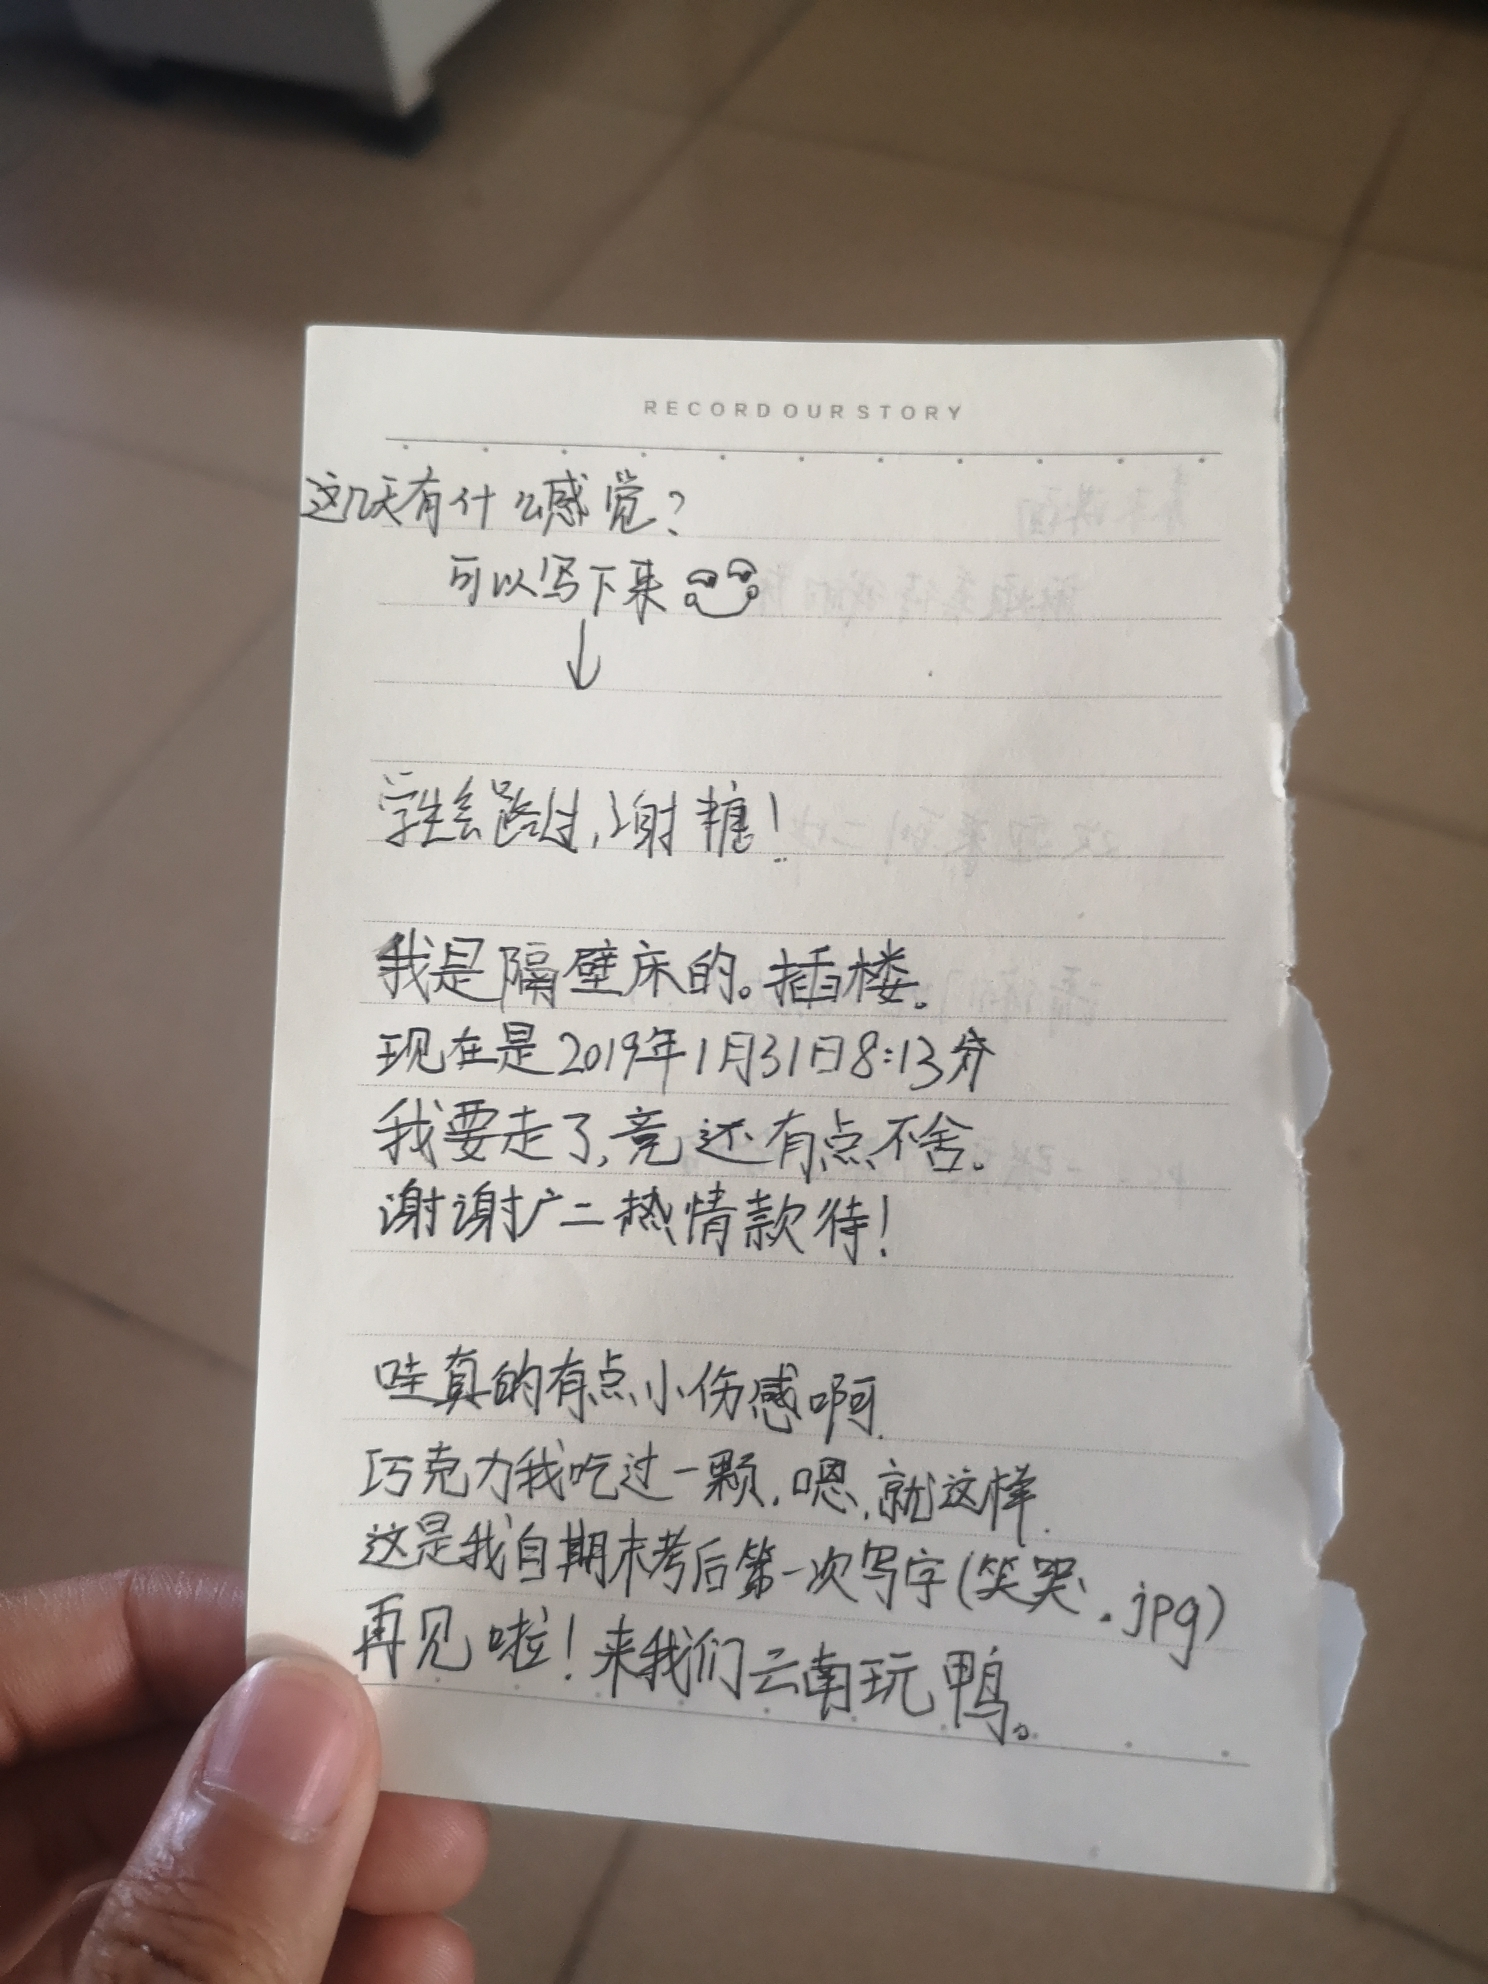 RECORD OUR STORY
这几天有什么感觉?
可以写下来
学生会路过,谢糖!
我是隔壁床的。插楼。
现在是2019年1月31日8:13分
我要走了,竟还有点不舍。
谢谢广二热情款待!
哇真的有点小伤感啊.
巧克力我吃过一颗,嗯,就这样.
这是我自期末考后第一次写字(笑哭.jpg)
再见啦!来我们云南玩鸭。